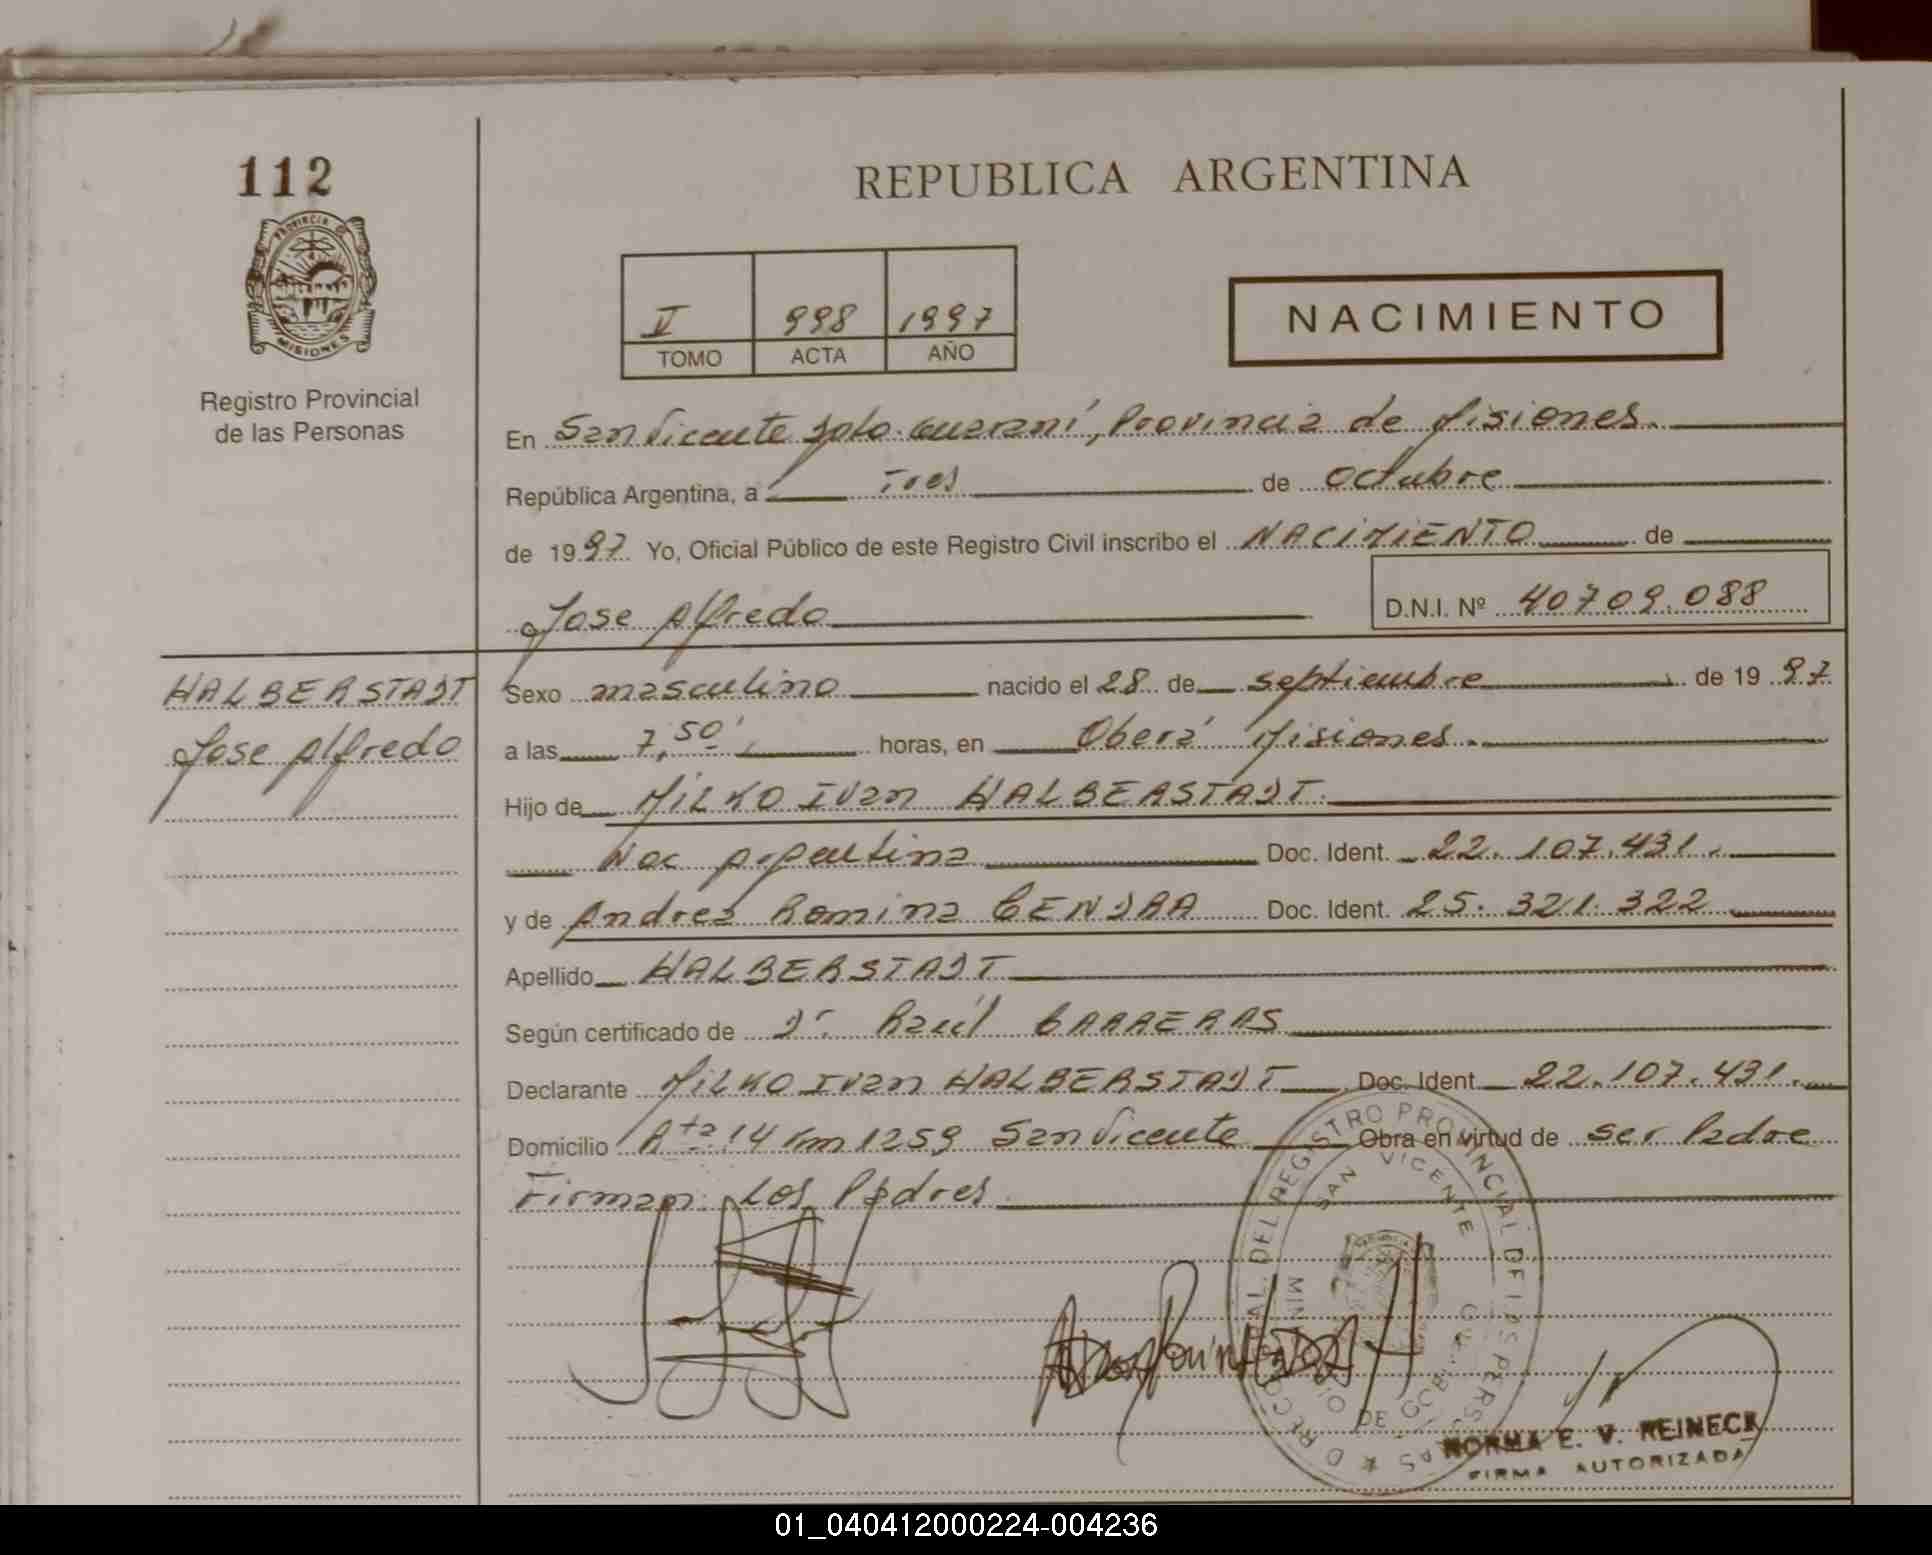 112
PROVINCIA DE
MISIONES
Registro Provincial
de las Personas
REPUBLICA ARGENTINA
V 998 1997
TOMO ACTA AÑO
NACIMIENTO
En San Vicente Dpto. Guaraní, Provincia de Misiones.
República Argentina, a Tres de Octubre
de 1997 Yo, Oficial Público de este Registro Civil inscribo el NACIMIENTO de
Jose Alfredo D.N.I. Nº 40709.088
HALBERSTADT
Jose Alfredo
Sexo masculino nacido el 28 de septiembre de 1997
a las 7,50 horas, en Oberá Misiones.
Hijo de MILKO IVan HALBERSTADT.
Nac Argentina Doc. Ident. 22.107.431.
y de Andrea Romina CENDRA Doc. Ident. 25.321.322
Apellido HALBERSTADT
Según certificado de Dr. Raúl CARRERAS
Declarante MILKO IVan HALBERSTADT Doc. Ident 22.107.431.
Domicilio Rta 14 Km 1259 San Vicente Obra en virtud de ser Padre
Firman: Los Padres
DEL REGISTRO PROVINCIAL DE LAS PERSONAS
SAN VICENTE
NORMA E. V. REINECK
FIRMA AUTORIZADA
01_040412000224-004236